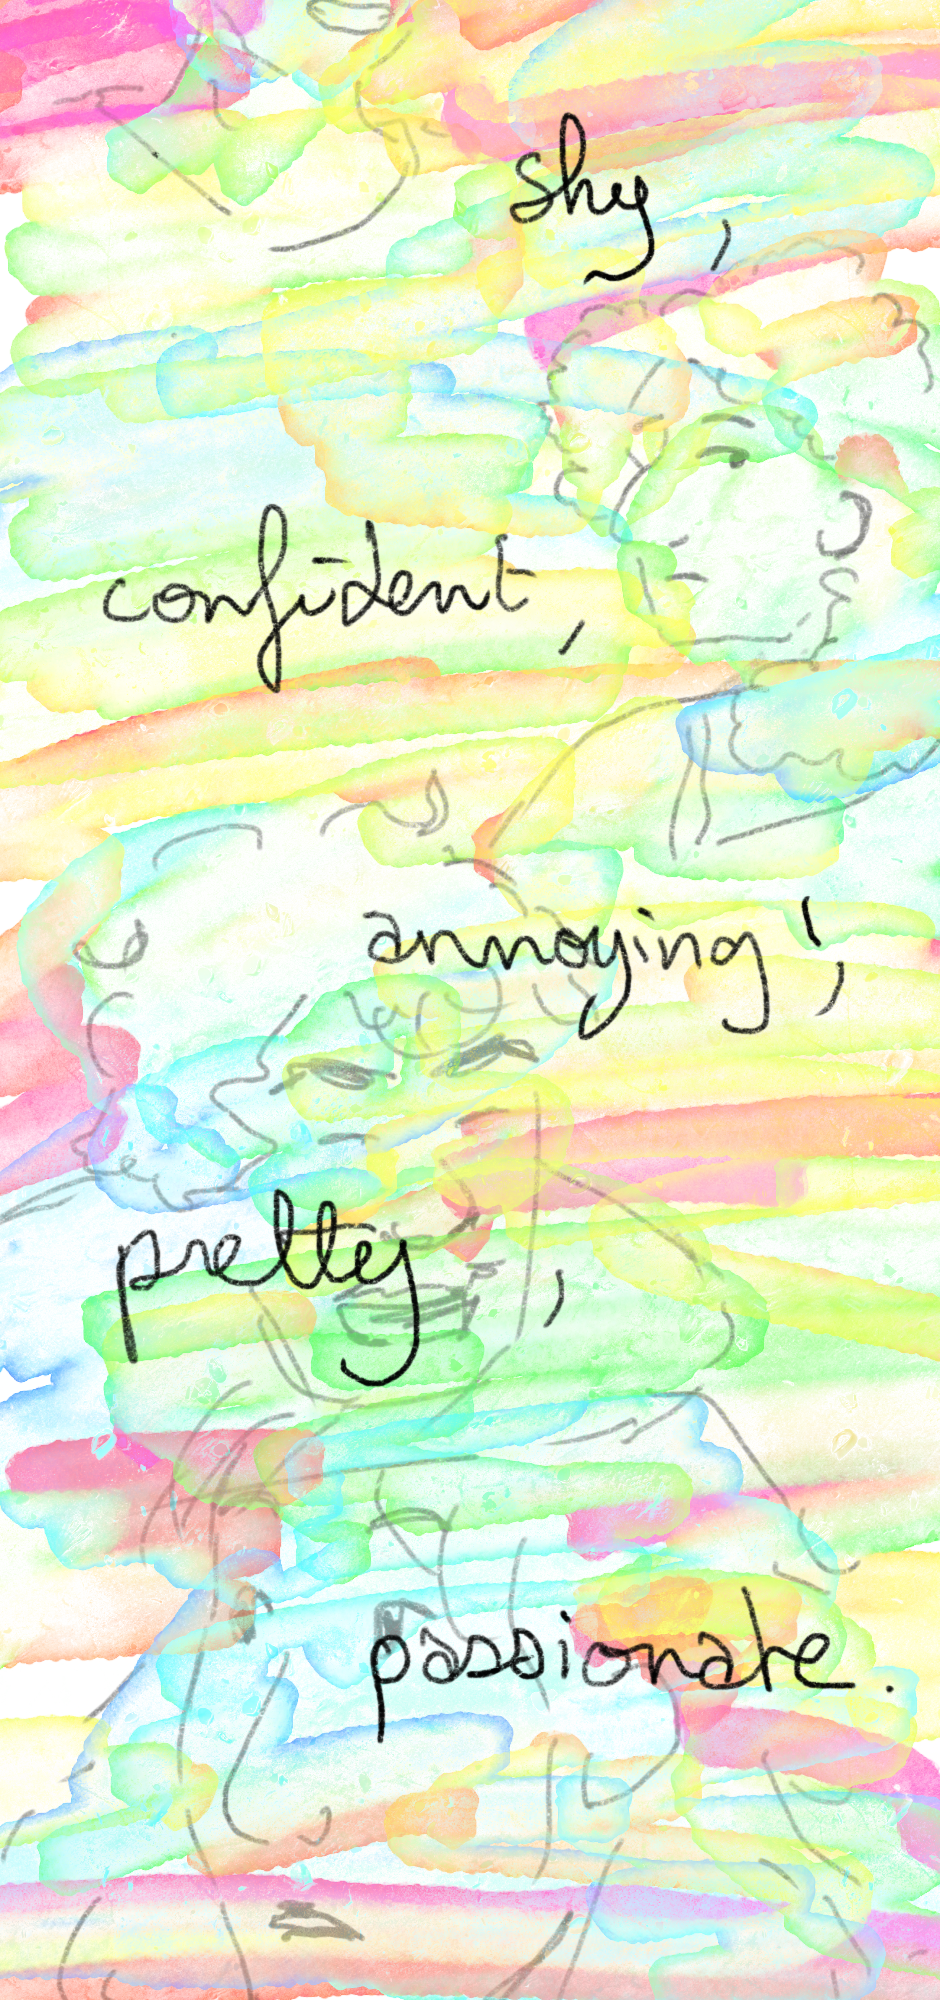 shy,
confident,
annoying!,
pretty,
passionate.